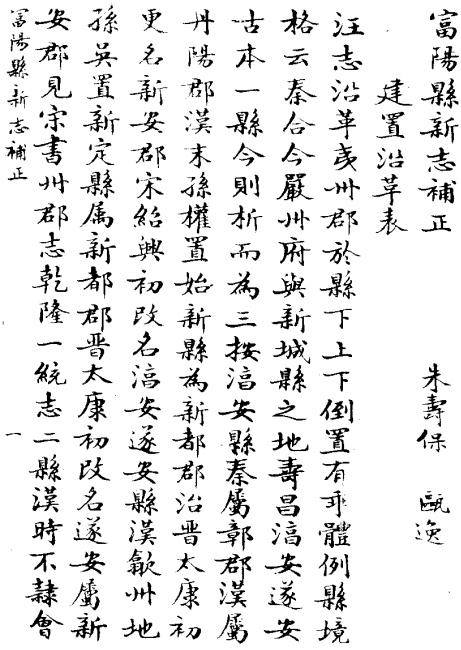 富陽縣新志補正
朱壽保 甌逸
建置沿革表
汪志沿革表州郡於縣下上下倒置有乖體例縣境
格云秦合今嚴州府與新城縣之地壽昌淳安遂安
古本一縣今則析而為三按淳安縣秦屬鄣郡漢屬
丹陽郡漢末孫權置始新縣為新都郡治晉太康初
更名新安郡宋紹興初改名淳安遂安縣漢歙州地
孫吳置新定縣属新都郡晋太康初改名遂安屬新
安郡見宋書州郡志乾隆一統志二縣漢時不隸會
富陽縣新志補正
一